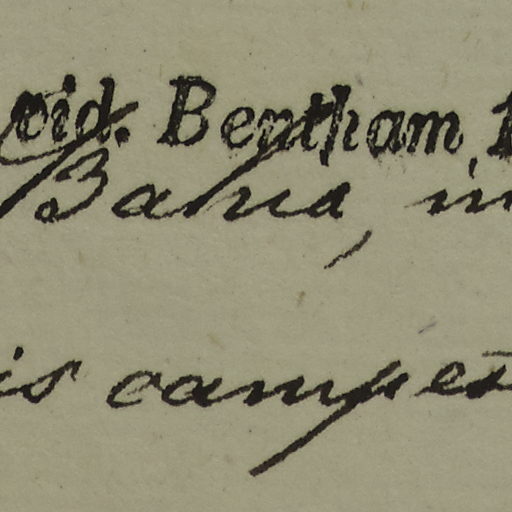 oid. Bentham, 1
Bahia, in
is campes